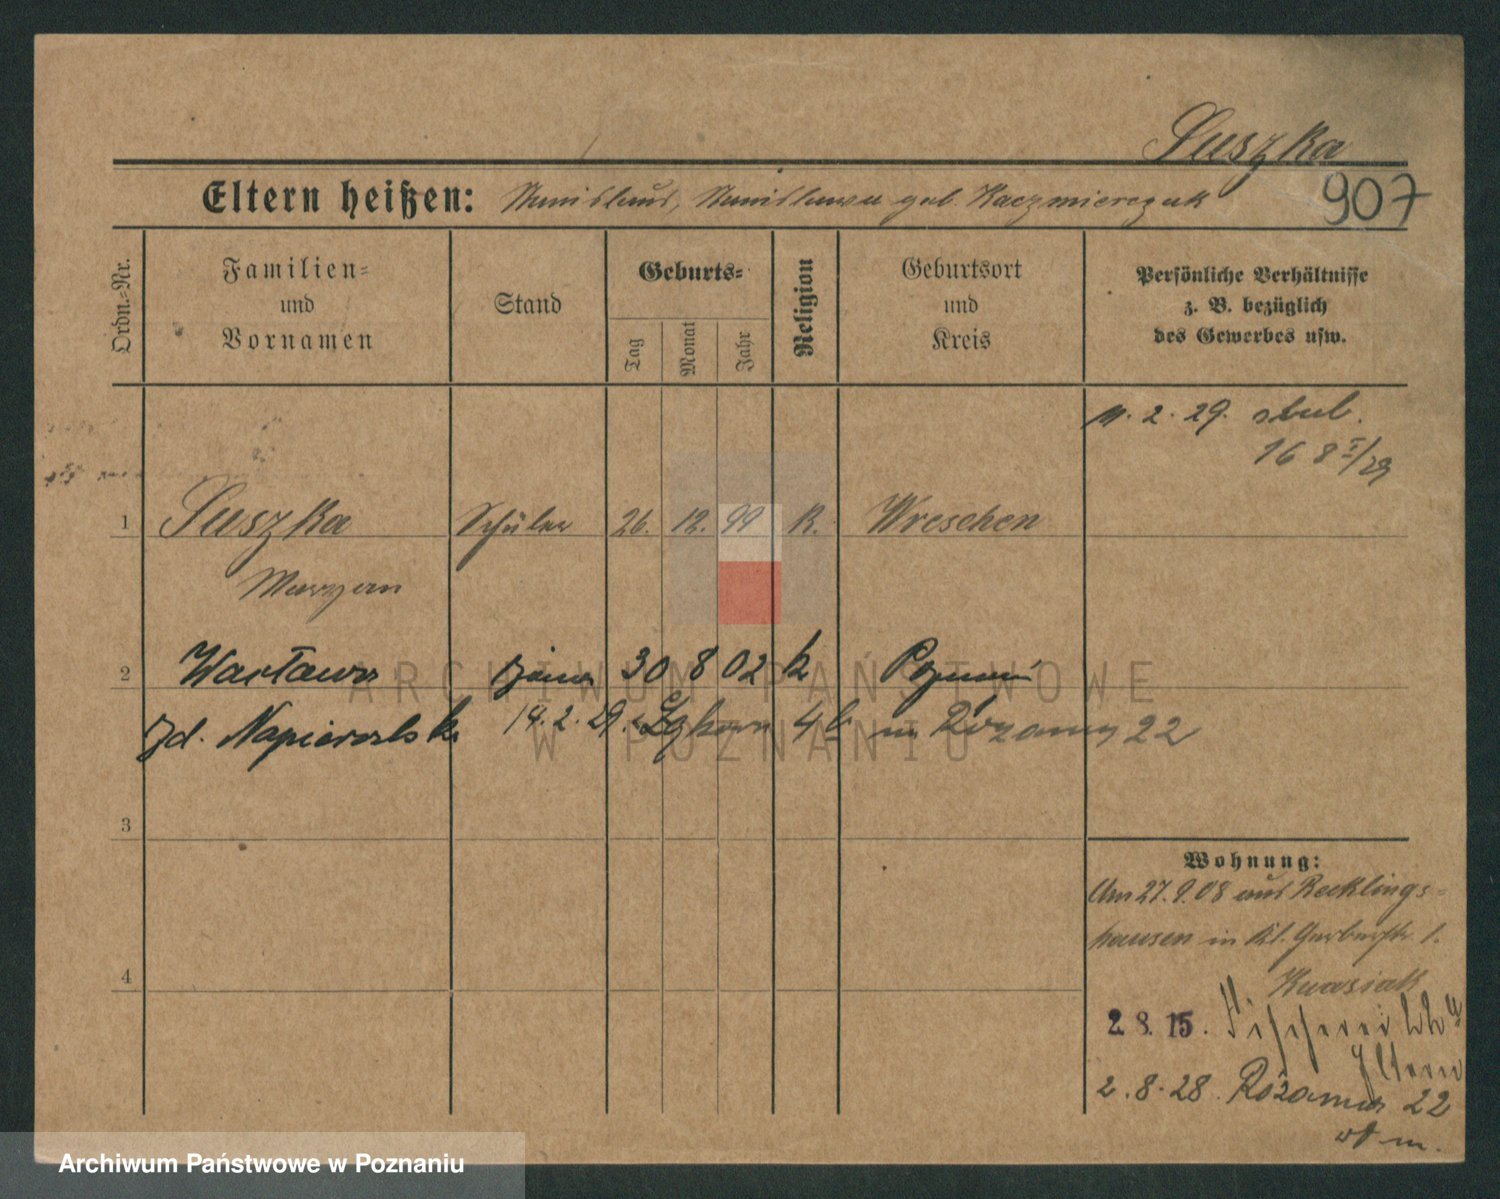 Suszka
907
Eltern heißen: Stanislaus, Stanislawa geb. Kaczmierczak
Ordn.-Nr.
Familien- und Vornamen
Stand
Geburts-
Tag
Monat
Jahr
Religion
Geburtsort und Kreis
Persönliche Verhältnisse
z. B. bezüglich
des Gewerbes usw.
2. 29. slub.
16 8 I/29
1 Suszka Schüler 26. 12. 99 K. Wreschen
Maryan
2 Wacława żona 30 8 02 k Poznań
Napieralska 14. 2. 29. 4b Różana 22
3
4
Wohnung:
Am 27.9.08 aus Recklings-
hausen in Kl. Gerberstr. 1.
Kwasiak
2. 8. 15. Fischerei
Eltern
2. 8. 28. Różana 22
ARCHIWUM PAŃSTWOWE
W POZNANIU
Archiwum Państwowe w Poznaniu